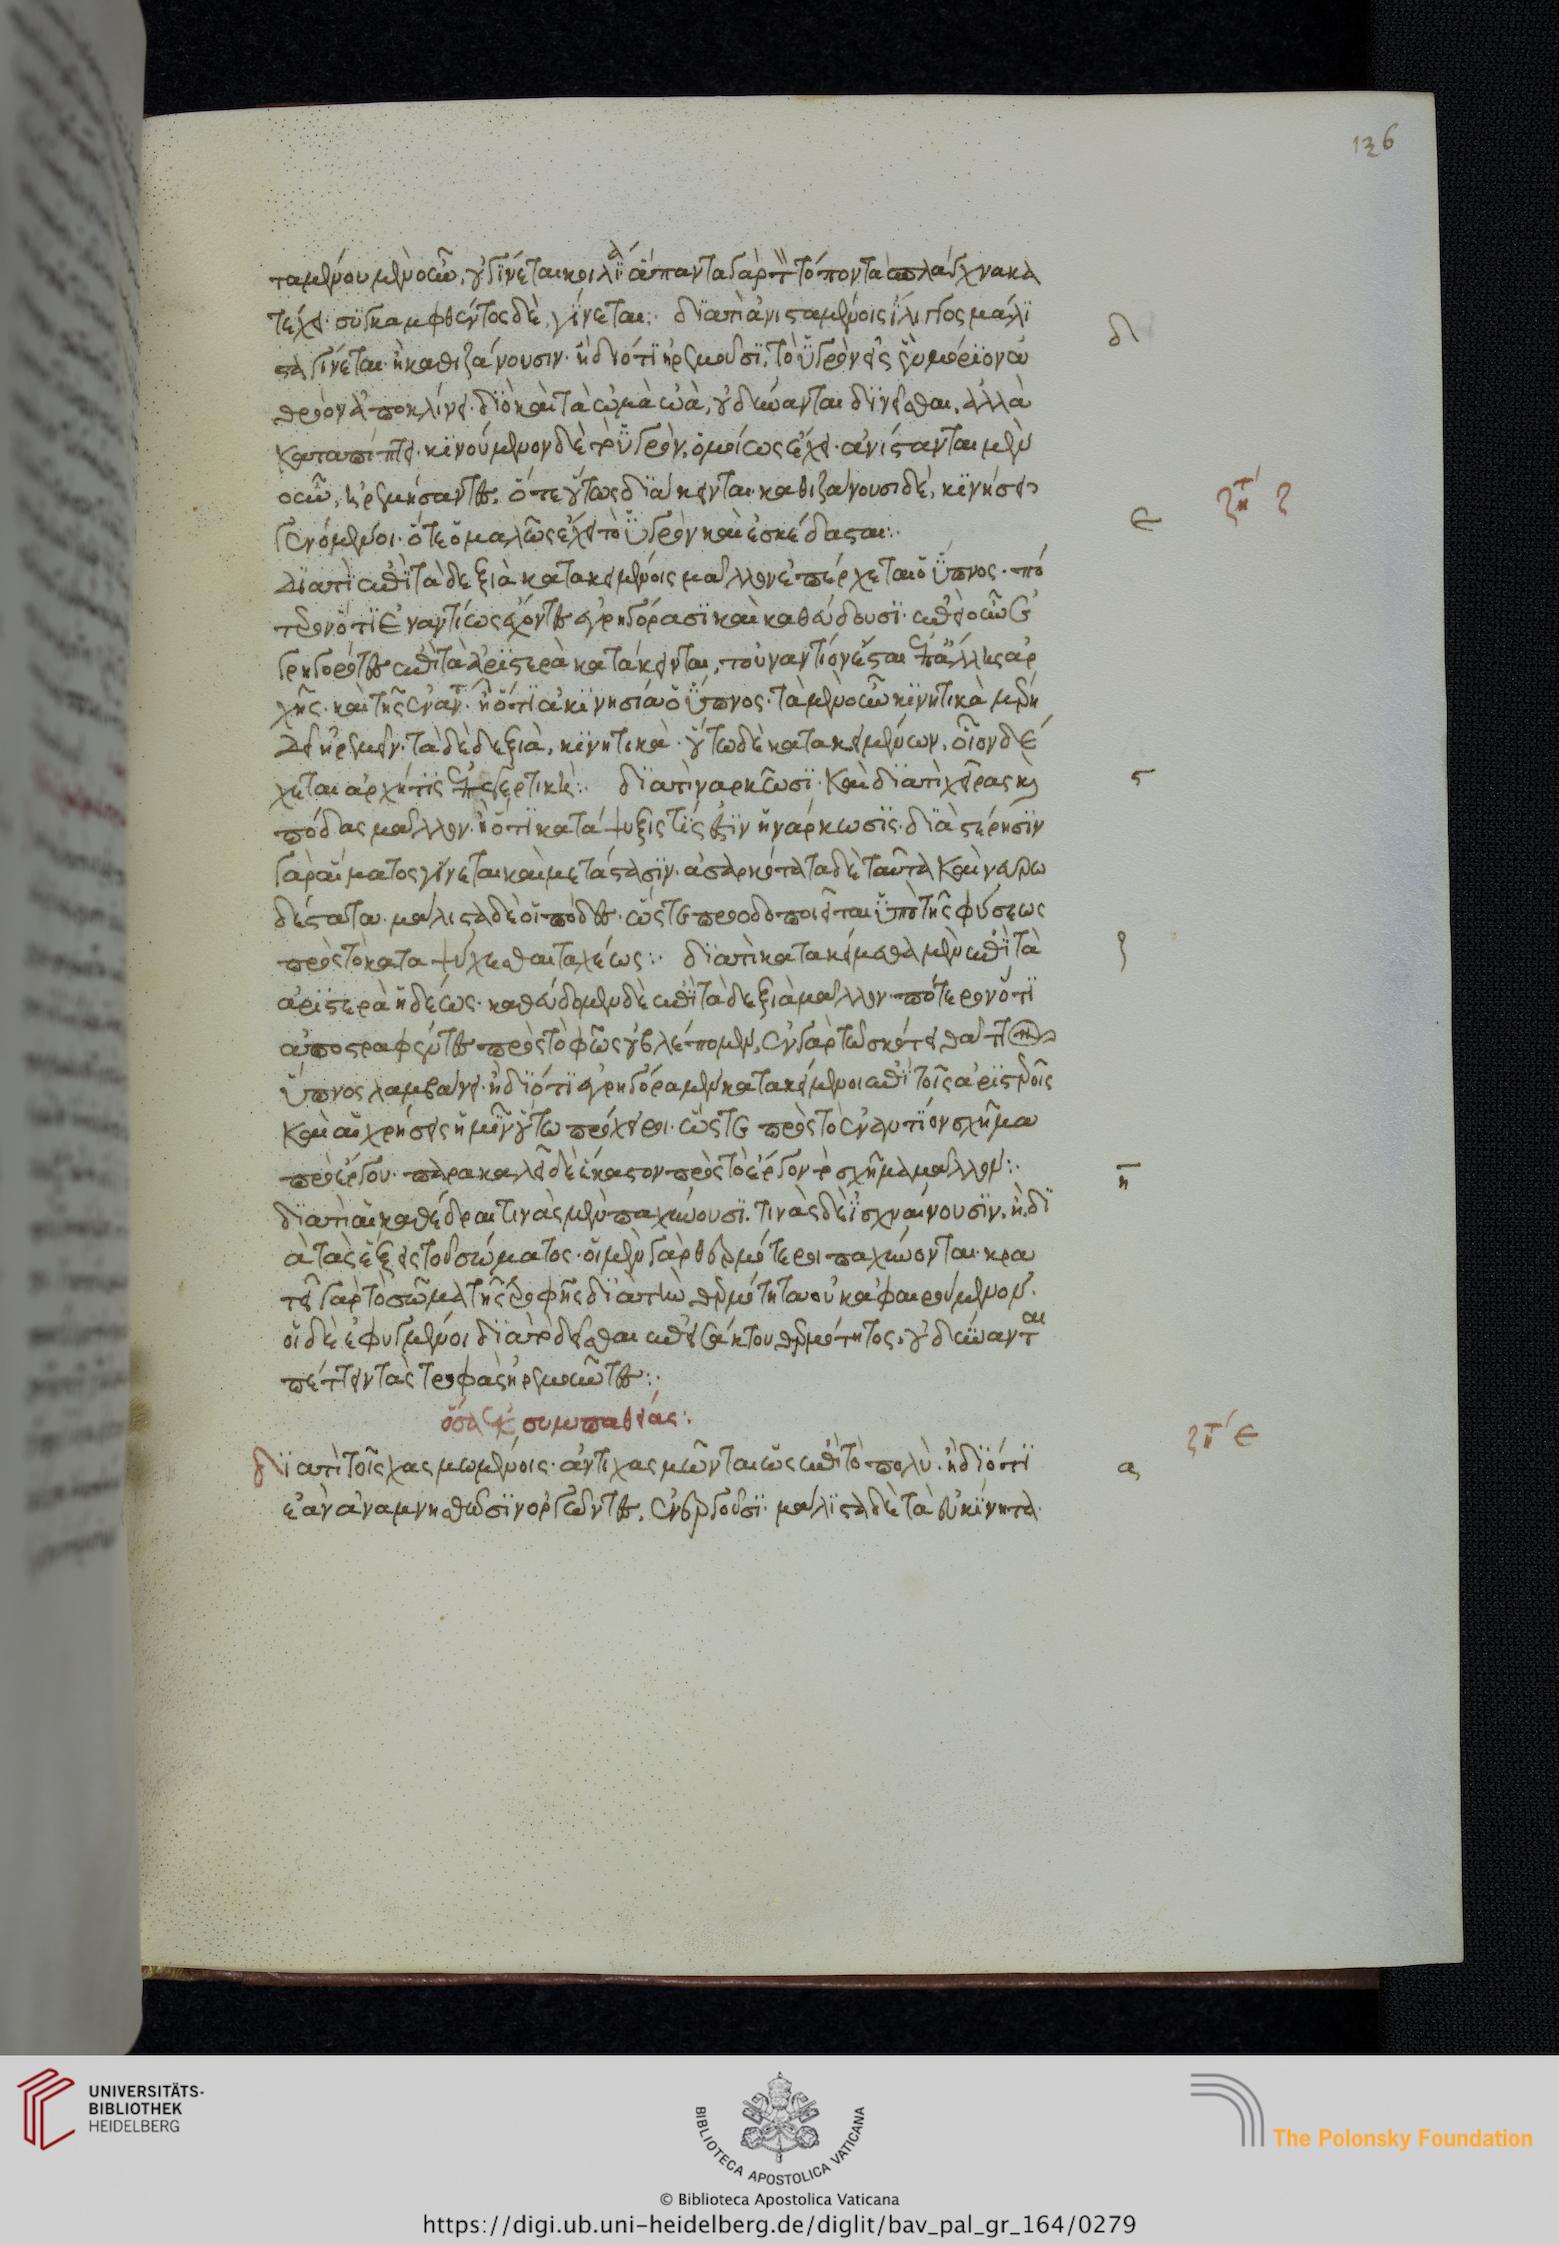 126
ταμένου μὲν οὖν, οὐ γίνεται κοιλΐα ἅπαντα γὰρ τὸν τόπον τὰ σπλάγχνα κα
τέχει· συγκαμφθέντος δὲ, γίνεται:· διατὶ ἀνισταμένοις ἴλιγγος μάλι
στα γίνεται· ἢ καθιζάνουσιν· ἢ διότι ἠρεμοῦσι, τὸ ὑγρὸν εἰς ἓν μόριον ἀ
θρόον ἀποκλίνει· διὸ καὶ τὰ ὠμὰ ὠὰ, οὐ δύνανται δινεῖσθαι, ἀλλὰ
καταπίπτει· κινούμενον δὲ τὸ ὑγρὸν, ὁμοίως ἔχει· ἀνίστανται μὲν
οὖν, ἠρεμήσαντες, ὅτε οὕτως διάκεινται· καθιζάνουσι δὲ, κινήσει
γενόμενοι· ὅτε ὁμαλῶς ἔχει τὸ ὑγρὸν καὶ ἐσκέδασται:·
Διατὶ ἐπὶ τὰ δεξιὰ κατακειμένοις μᾶλλον ἐπέρχεται ὁ ὕπνος· πό
τερον ὅτι ἐναντίως ἔχοντες ἐγρηγόρασι καὶ καθεύδουσι· ἐπεὶ οὖν ἐ
γρηγορότες ἐπὶ τὰ ἀριστερὰ κατάκεινται, τοὐναντίον ἔσται ἐπ' ἄλλης ἀρ
χῆς· καὶ τῆς ἐναντ· ἢ ὅτι ἀκινησία ὁ ὕπνος· τὰ μὲν οὖν κινητικὰ μέρη
δεῖ ἠρεμεῖν· τὰ δὲ δεξιὰ, κινητικὰ· οὕτω δὲ κατακειμένων, οἷον δέ
χεται ἀρχή τις ἐπεγερτικὴ:· διατὶ ναρκῶσι· καὶ διατὶ χεῖρας καὶ
πόδας μᾶλλον· ἢ ὅτι κατάψυξις τίς ἐστιν ἡ νάρκωσις· διὰ στέρησιν
γὰρ αἵματος γίνεται καὶ μετάστασιν· ἀσαρκότατα δὲ ταῦτα καὶ νευρω
δέστατα· μάλιστα δὲ οἱ πόδες· ὥστε προοδοποιεῖται ὑπὸ τῆς φύσεως
πρὸς τὸ καταψύχεσθαι ταχέως:· διατὶ κατακείμεθα μὲν ἐπὶ τὰ
ἀριστερὰ ἡδέως· καθεύδομεν δὲ ἐπὶ τὰ δεξιὰ μᾶλλον· πότερον ὅτι
ἀποστραφέντες πρὸς τὸ φῶς οὐ βλέπομεν, ἐν γὰρ τῷ σκότει θᾶττον
ὕπνος λαμβάνει· ἢ διότι ἐγρηγόραμεν κατακείμενοι ἐπὶ τοῖς ἀριστεροῖς
καὶ αἱ χρήσεις ἡμῖν οὕτω πρόχειροι· ὥστε πρὸς τὸ ἐναντίον σχῆμα
πρὸ ἔργου· παρακαλεῖ δὲ ἕκαστον πρὸς τὸ ἔργον τὸ σχῆμα μᾶλλον:·
διατὶ αἱ καθέδραι τινὰς μὲν παχύνουσι· τινὰς δὲ ἰσχναίνουσιν, ἢ δι
ὰ τὰς ἕξεις τοῦ σώματος· οἱ μὲν γὰρ θερμότεροι παχύνονται· κρα
τεῖ γὰρ τὸ σῶμα τῆς τροφῆς διὰ τὴν θερμότητα οὐκ ἀφαιρούμενον·
οἱ δὲ ἐψυγμένοι διὰ τὸ δεῖσθαι ἐπεισάκτου θερμότητος, οὐ δύνανται
πέττειν τὰς τροφὰς ἠρεμοῦντες:·
ὅσα ἐκ συμπαθείας:
διατὶ τοῖς χασμωμένοις· ἀντιχασμῶνται ὡς ἐπὶ τὸ πολὺ· ἢ διότι
ἐὰν ἀναμνησθῶσιν ὀργῶντες, ἐνεργοῦσι· μάλιστα δὲ τὰ εὐκίνητα
δ
ε
ϛ
ζ
η
α
UNIVERSITÄTS-
BIBLIOTHEK
HEIDELBERG
BIBLIOTECA APOSTOLICA VATICANA
The Polonsky Foundation
© Biblioteca Apostolica Vaticana
https://digi.ub.uni-heidelberg.de/diglit/bav_pal_gr_164/0279